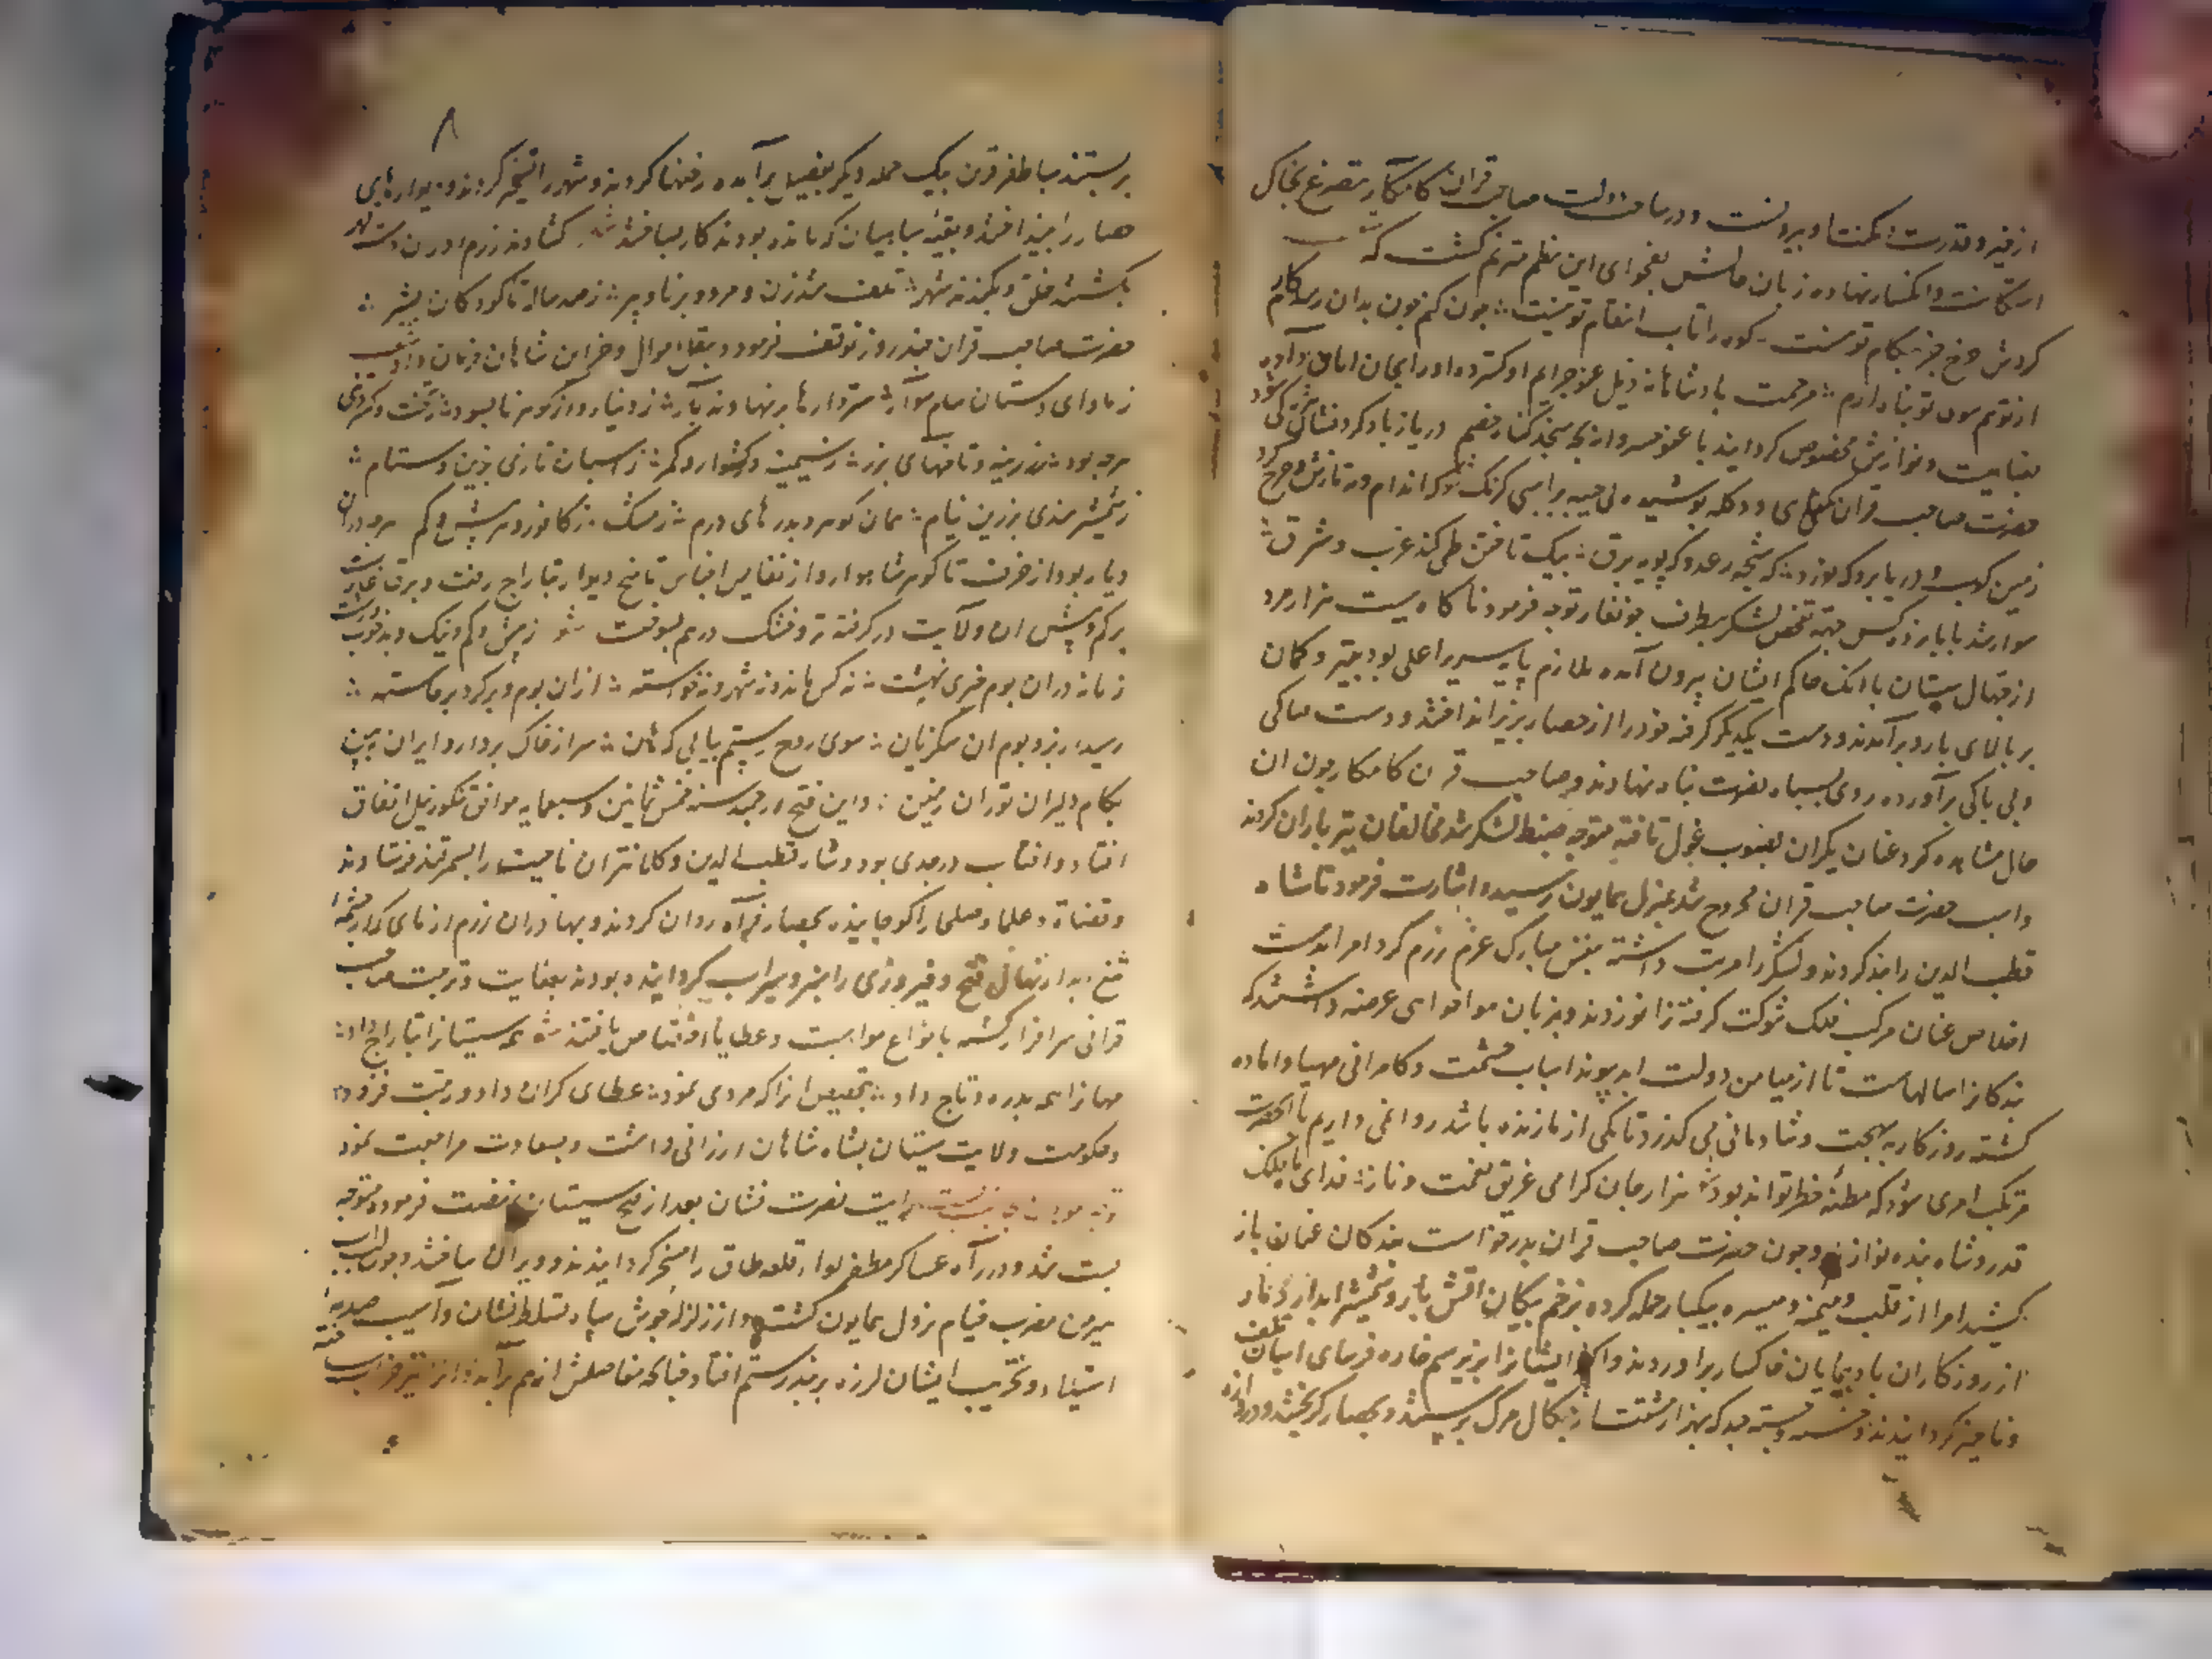 از فیز و قدرت و مکنت او بیرونست و در ساحت دولت صاحب قران کامکار تضرع بخاک
استکانت و انکسار نهاده زبان حالش بفحوای این نظم مترنم گشت که
گردش چرخ جز بکام تو نیست کوه را تاب انتقام تو نیست چون کنم چون بدان رسد کارم
از تو هم سوی تو پناه دارم مرحمت پادشاهانه ذیل عفو جرایم او گسترده او را بجان امان داده
بعنایت و نوازش مخصوص گردانید با عفو خسروانه چه سنجد گناه خصم
حضرت صاحب قران دو دکله پوشیده بی جیبه بر اسپی
زمین کوب و دریا بر و که نورد که شیهه رعد و که پویه برق بیک تاختن طی کند غرب و شرق
سوار شد با پانزده کس جهة تفحص لشکر بطرف جونغار توجه فرمود ناگاه بیست هزار مرد
از جهال سیستان با آنک حاکم ایشان بیرون آمده ملازم پایه سریر اعلی بود بتیر و کمان
بر بالای بارو برآمدند و دست یکدیگر گرفته خود را از حصار بزیر انداختند و دست
و بی باکی برآورده روی بسپاه نصرت پناه نهادند و صاحب قران کامکار چون ان
حال مشاهده کرد عنان یکران بصوب غول تافته متوجه ضبط لشکر شد مخالفان تیر باران کردند
و اسب حضرت صاحب قران مجروح شد بمنزل همایون رسید و اشارت فرمود تا شاه
قطب الدین را بند کردند و لشکر را مرتب داشته بنفس مبارک عزم رزم کرد امرا بدست
اخلاص عنان مرکب فلک شوکت گرفته زانو زدند و بزبان هواخواهی عرضه داشتند که
بندگانرا سالهاست تا از میامن دولت ابد پیوند اسباب حشمت و کامرانی مهیا و اماده
گشته روزگار به بهجت و شادمانی می گذرد تا یکی از ما زنده باشد روا نمی داریم تا انحضرت
مرتکب امری شود که مظنه خطر تواند بود هزار جان گرامی غریق نعمت و ناز فدای
قدر و شاه بنده نواز و چون حضرت صاحب قران بدرخواست بندگان عنان باز
کشید امرا از قلب و میمنه و میسره بیکبار حمله کرده بزخم پیکان آتش بار و شمشیر ابدار دمار
از روزگار ان باد پیمایان خاکسار براوردند و اکثر ایشانرا بزیر سم خاره فرسای اسپان تلف
و ناچیز گردانیدند و خسته و بسته چند که بهزار مشقت از چنگال مرگ برستند و بحصار گریختند و دروازه
۸
بر بستند سپاه ظفر قرین بیک حمله دیگر بفصیل برآمده رخنها کردند و شهر را تسخیر کردند و دیوارهای
حصار را بینداختند و بقیه سپاهیان که مانده بودند کار بساختند شعر گشادند زرم اوران دست قهر
بکشتند خلق و بکندند شهر تلف شد زن و مرد و برنا و پیر ز صد ساله تا کودکان بشیر
حضرت صاحب قران چند روز توقف فرمود و بنقل اموال و خزاین شاهان فرمان داد
ز ماوای دستان سام سوار شتردارها بر نهادند بار ز دینار و از گوهر نابسود ز تخت و
هرچه بود ز زرینه و تاجهای بزر ز سیمینه و گوشوار و کمر ز اسپان تازی بزین و ستام
ز شمشیر هندی بزرین نیام همان گوهر و بدرهای درم ز مشک ز کافور و هر بیش و کم هرچه دران
دیار بود از خزف تا گوهر شاهوار و از نفایس اجناس تا میخ دیوار بتاراج رفت و برق غارت
بر کم و بیش ان ولایت در گرفته تر و خشک درهم بسوخت شعر ز بیش و کم و نیک و بد خوب و زشت
زمانه دران بوم چیزی نهشت نه کس ماند و نه شهر و نه خواسته از ان بوم و بر گرد برخاسته
رسید از بر و بوم ان سگزیان سوی روح رستم بیابی که هان سر از خاک بردار و ایران ببین
بکام دلیران توران زمین و این فتح در سنه خمس ثمانین و سبعمایه موافق تنکوز ئیل اتفاق
افتاد و افتاب در جدی بود و شاه قطب الدین و کلانتران ان ناحیت را بسمرقند فرستادند
و قضاة و علما و صلحا را کوچانیده بحصار فراه روان کردند و بهادران رزم ازمای که از چشمه
تیغ ابدار نهال فتح و فیروزی را سبز و سیراب گردانیده بودند بعنایت و تربیت صاحب
قرانی سرافراز گشته بانواع مواهب و عطایا اختصاص یافتند شعر همه سیستانرا بتاراج داد
سپه را همه بدره و تاج داد بتخصیص انرا که مردی نمود عطای گران داد و رتبت فزود
و حکومت ولایت سیستان بشاه شاهان ارزانی داشت و بسعادت مراجعت نمود
رایت نصرت نشان بعد از فتح سیستان نهضت فرمود و متوجه
بست شد و در راه عساکر مظفر لوا قلعه طاق را مسخر گردانیدند و ویران ساختند و چون لب اب
هیرمن مضرب خیام نزول همایون گشت و از زلزله جوش سپاه تسلط نشان و اسیب صدمه
استیلا و تخریب ایشان لرزه بر بند رستم افتاد چنانکه مفاصلش از هم برآمد و از تیز خراب